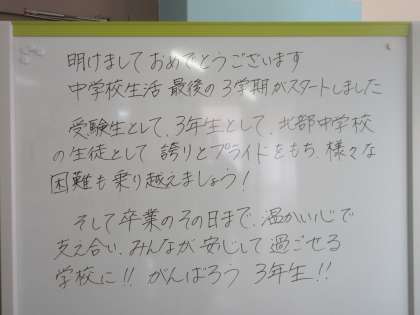 明けましておめでとうございます
中学校生活 最後の3学期がスタートしました
受験生として、3年生として、北部中学校
の生徒として 誇りとプライドをもち、様々な
困難も乗り越えましょう!
そして卒業のその日まで、温かい心で
支え合い、みんなが安心して過ごせる
学校に!! がんばろう 3年生!!